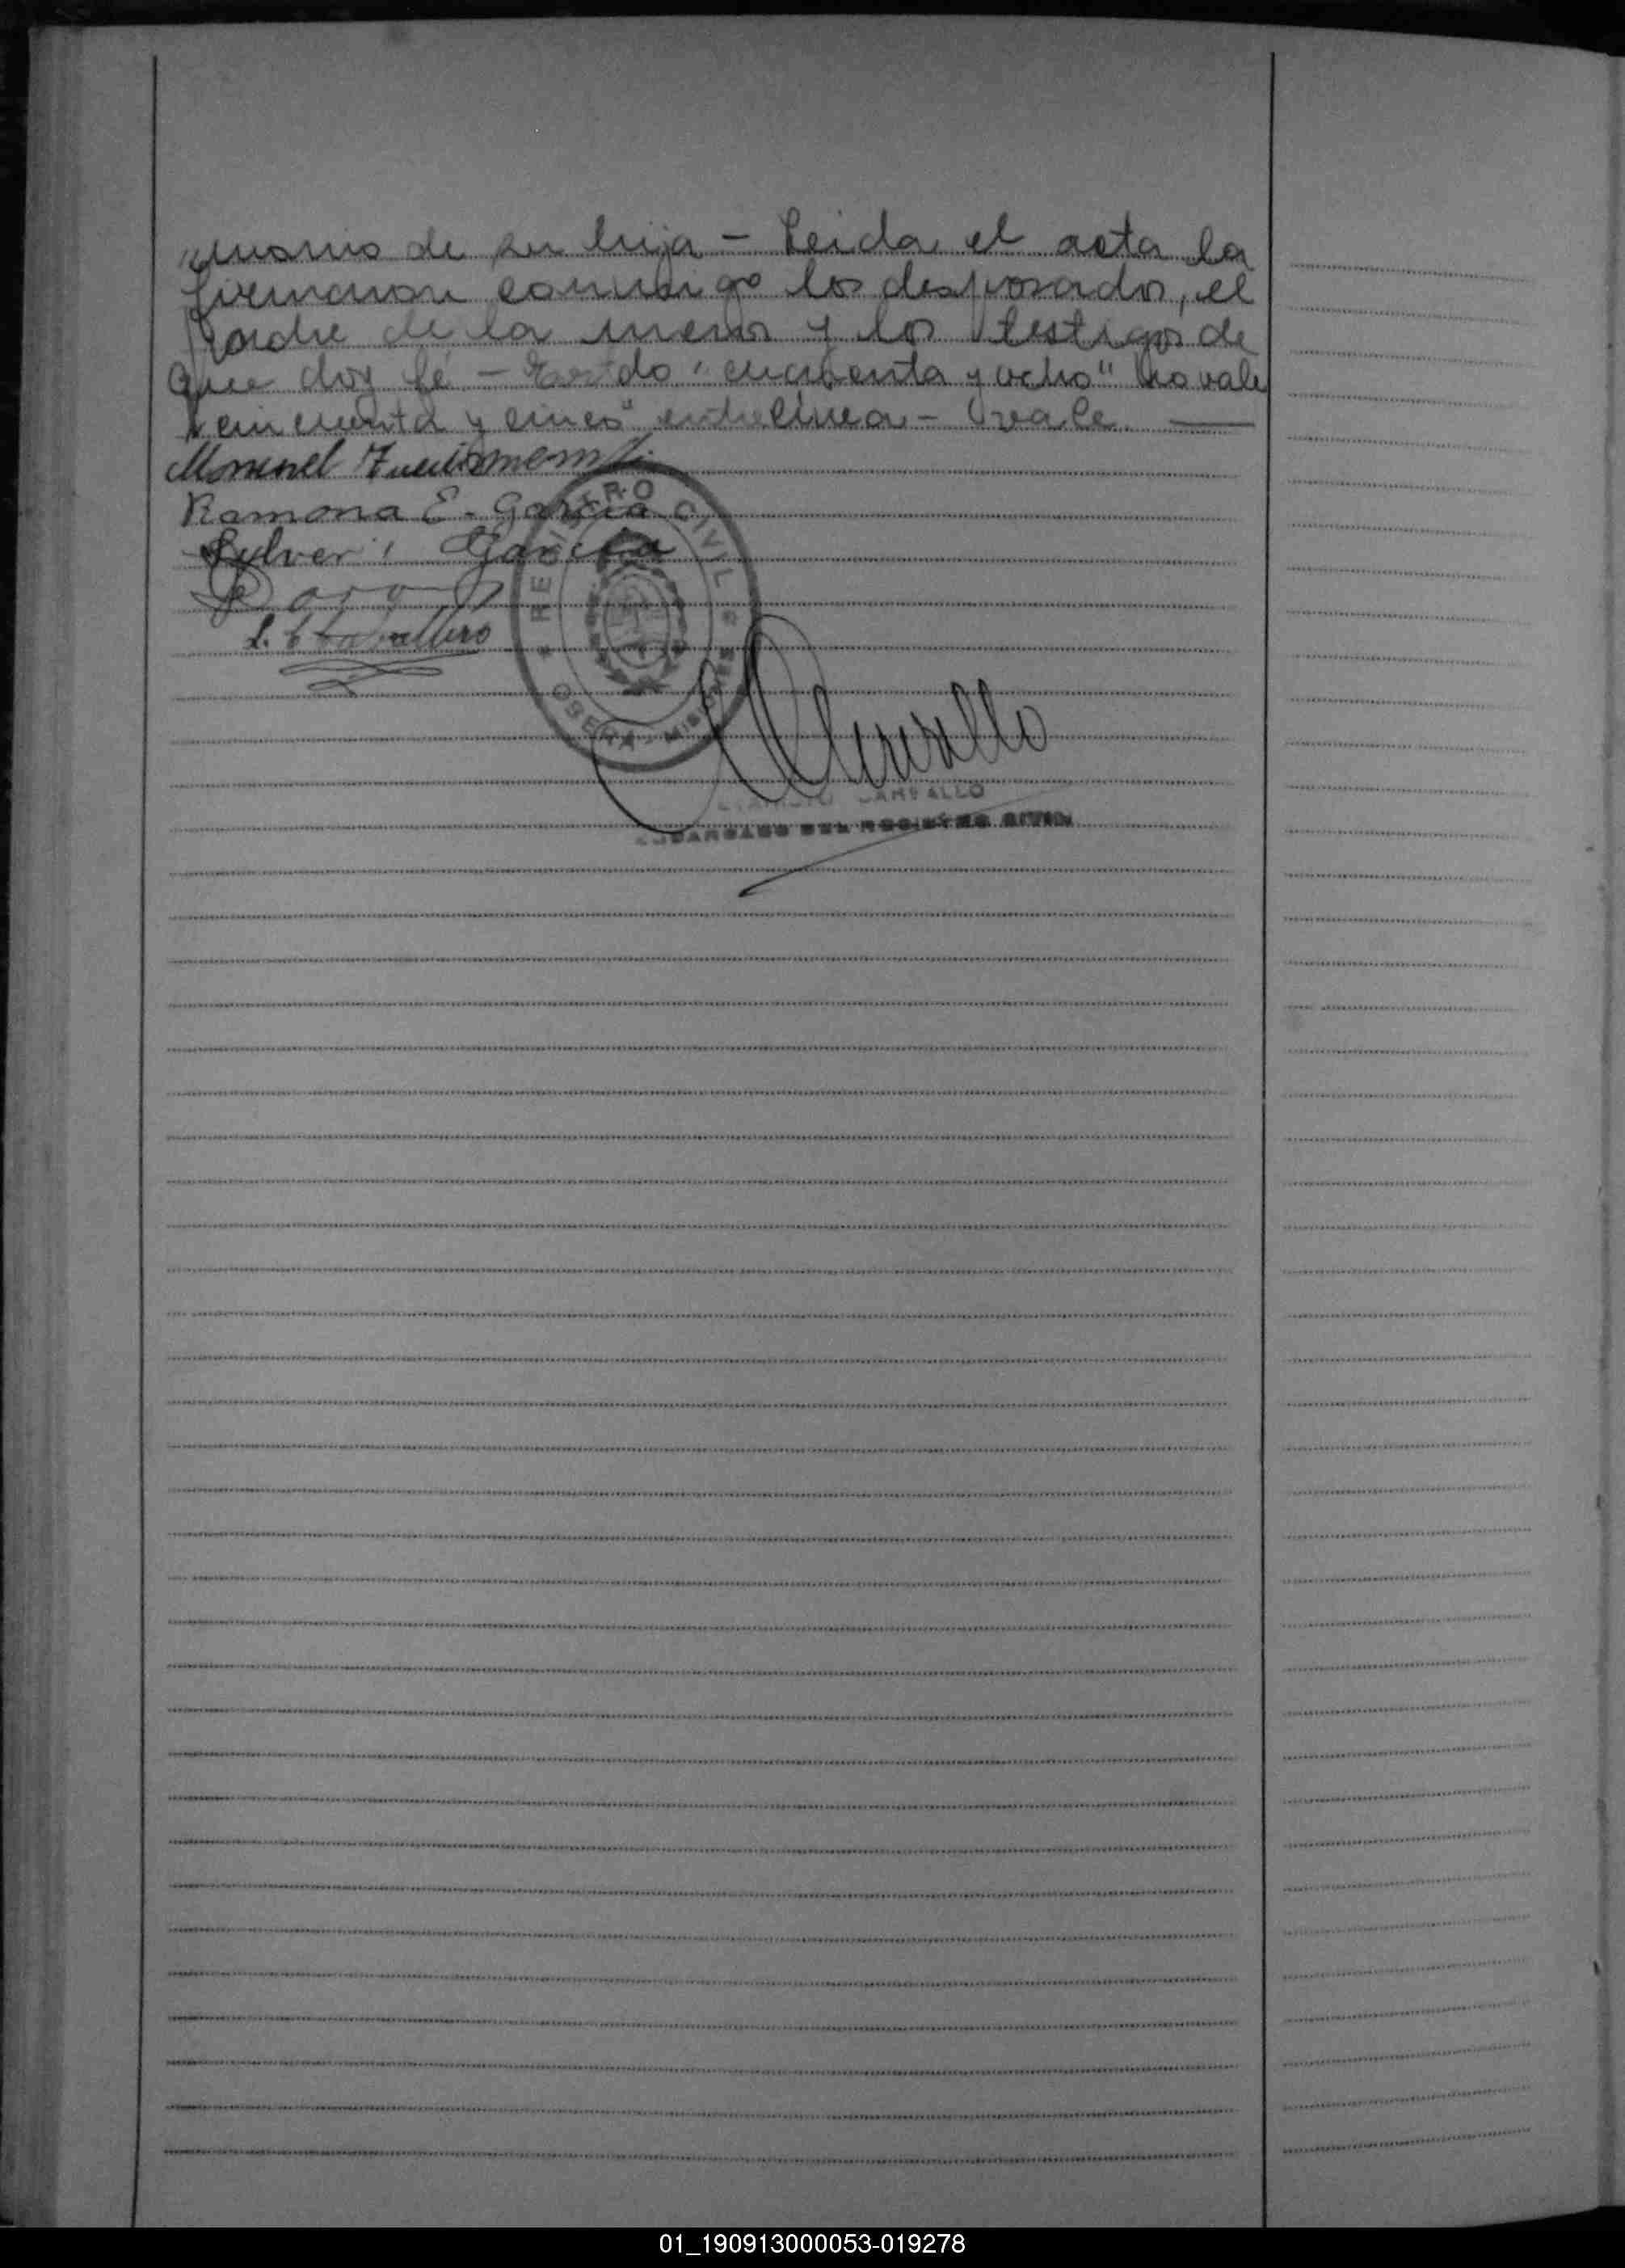 monio de su hija - Leida el acta la
firmaron conmigo los desposados, el
padre de la menor y los testigos de
que doy fé - Testdo "cuarenta y ocho" no vale
"cincuenta y cinco" entrelínea - vale.
Manuel
Ramona E. Garcia
Garcia
L. Caballero
REGISTRO CIVIL
OBERA - MISIONES
Carvallo
CARVALLO
ENCARGADO DEL REGISTRO CIVIL
01_190913000053-019278